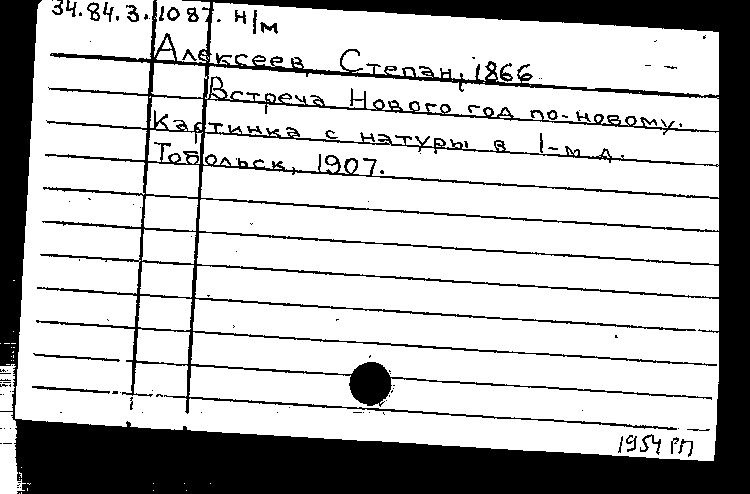 34.84.3.1087. н/м
Алексеев, Степан, 1866
Встреча Нового год по-новому.
Картинка с натуры в 1-м д.
Тобольск, 1907.
1954 РП